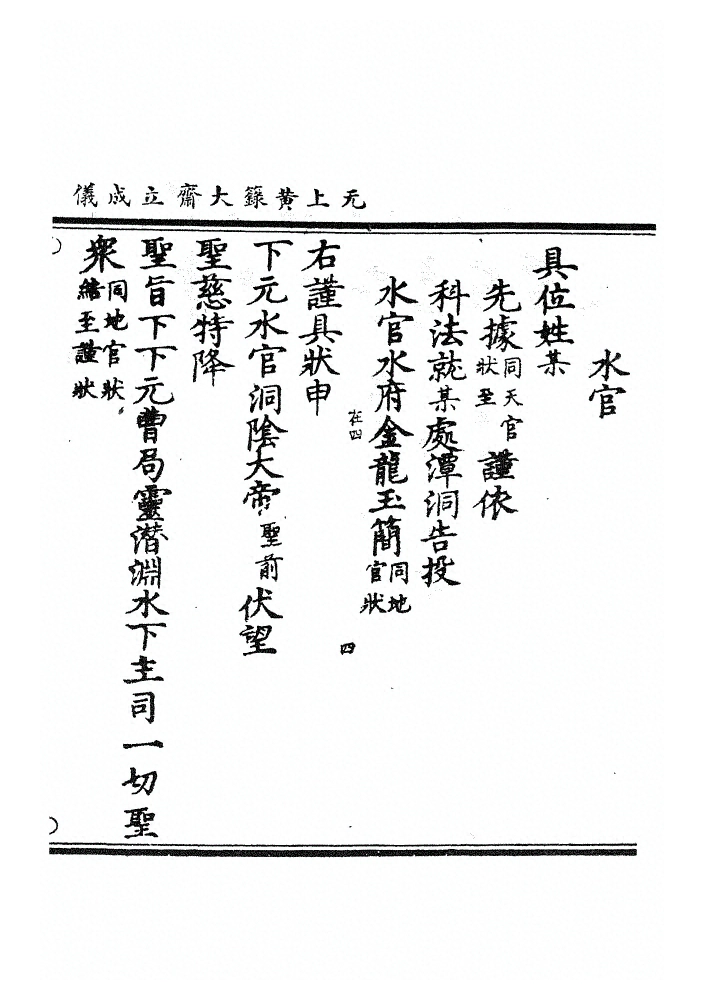 无上黄籙大齋立成儀
水官
具位姓某
先據同天官狀至謹依
科法就某處潭洞告投
水官水府金龍玉簡同地官狀
在四
四
右謹具狀申
下元水官洞陰大帝聖前伏望
聖慈特降
聖旨下下元曹局靈潜淵水下主司一切聖
衆同地官狀繳至謹狀